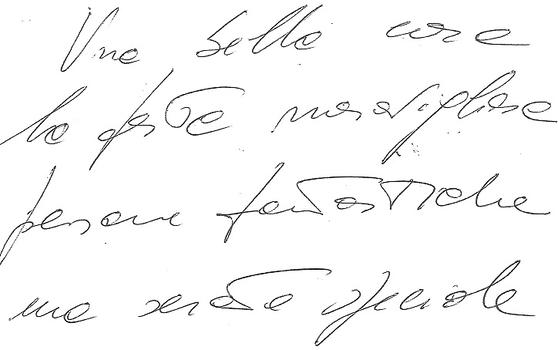 Una bella cosa
la festa meravigliosa
persone fantastiche
una serata speciale